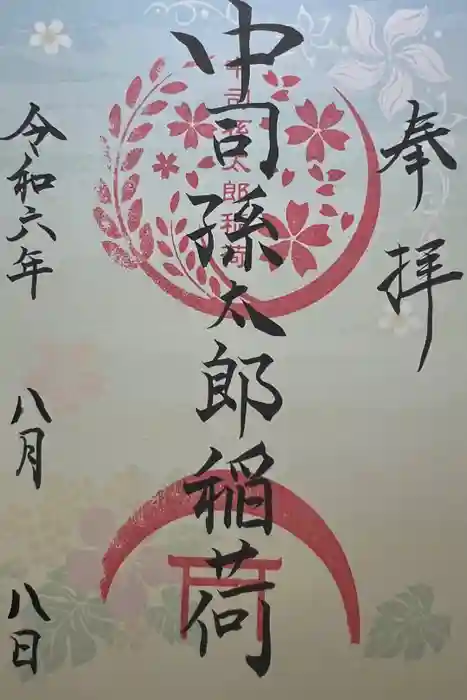 奉拝
中司孫太郎稲荷
中司孫太郎稲荷
令和六年 八月 八日